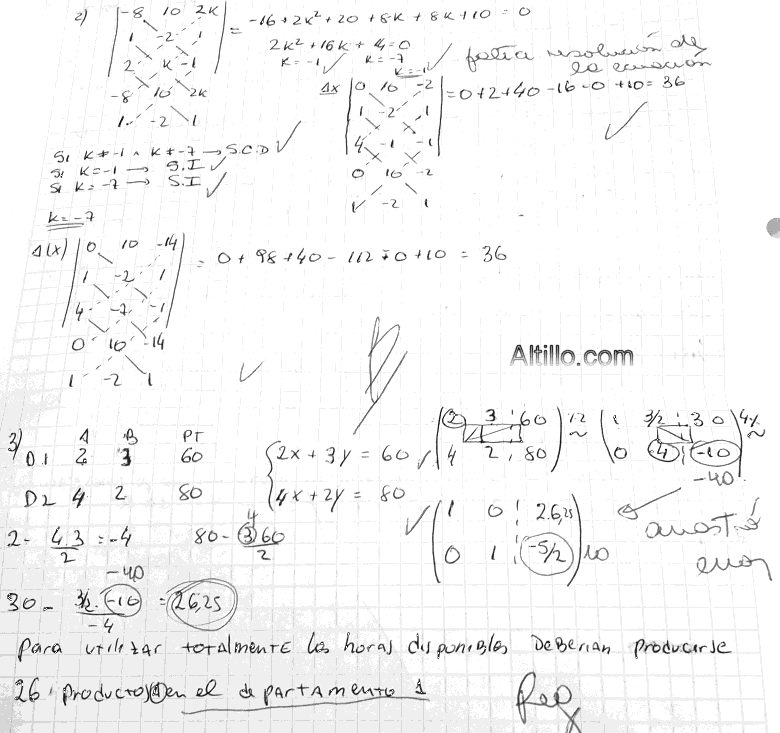 2) | -8 10 2K | = -16 + 2K² + 20 + 8K + 8K + 10 = 0
1 -2 1
2 K -1
-8 10 2K
1 -2 1
2K² + 16K + 14 = 0
K = -1 ✓ K = -7 ✓
K = -1
falta resolución de
la ecuación
Δx | 0 10 -2 | = 0 + 2 + 40 - 16 - 0 + 10 = 36
1 -2 1
4 -1 -1
0 10 -2
1 -2 1
Si K ≠ -1 ∧ K ≠ -7 → S.C.D ✓
Si K = -1 → S.I ✓
Si K = -7 → S.I ✓
K = -7
Δ(x) | 0 10 -14 | = 0 + 98 + 40 - 112 - 0 + 10 = 36
1 -2 1
4 -7 -1
0 10 -14
1 -2 1
Altillo.com
3) A B PT
D1 2 3 60
D2 4 2 80
2x + 3y = 60
4x + 2y = 80
( 2 3 60 ) ~ ( 1 3/2 30 ) ~
( 4 2 80 ) ( 0 4 -10 )
-40
( 1 0 26,25 )
( 0 1 -5/2 ) 10
arrastró
error
2 - 4.3/2 = -4 80 - 4 3 60/2
-40
30 - 3/2 . -10/-4 = 26,25
Para utilizar totalmente las horas disponibles deberian producirse
26 productos en el departamento 1
Reg